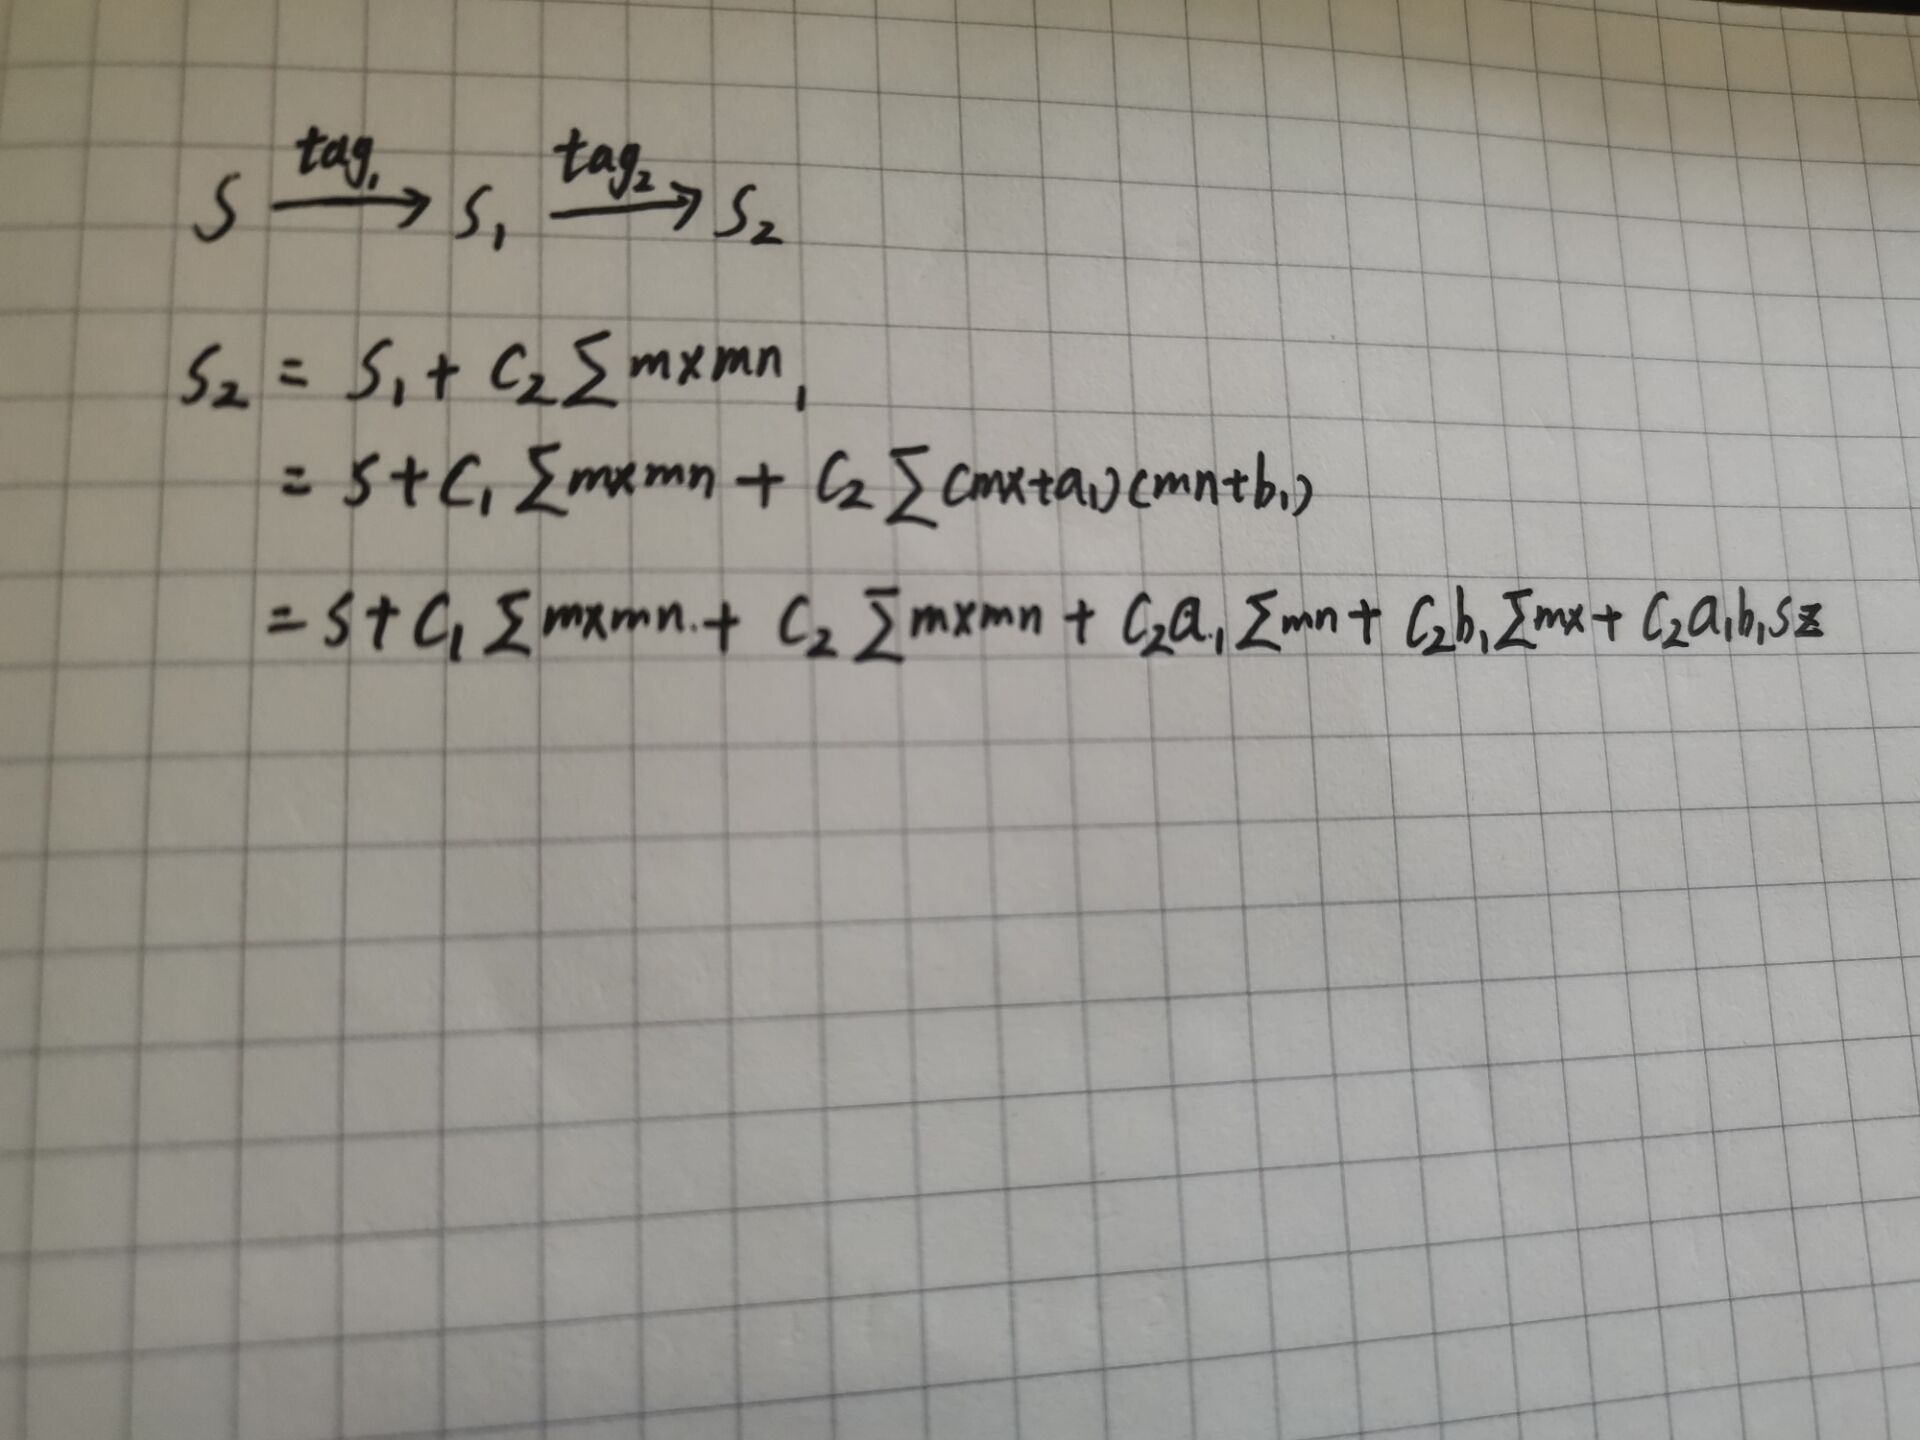 S —tag₁→ S₁ —tag₂→ S₂
S₂ = S₁ + C₂ ∑ mxmn₁
= S + C₁ ∑ mxmn + C₂ ∑ (mx+a₁)(mn+b₁)
= S + C₁ ∑ mxmn + C₂ ∑ mxmn + C₂a₁ ∑mn + C₂b₁ ∑mx + C₂a₁b₁sz